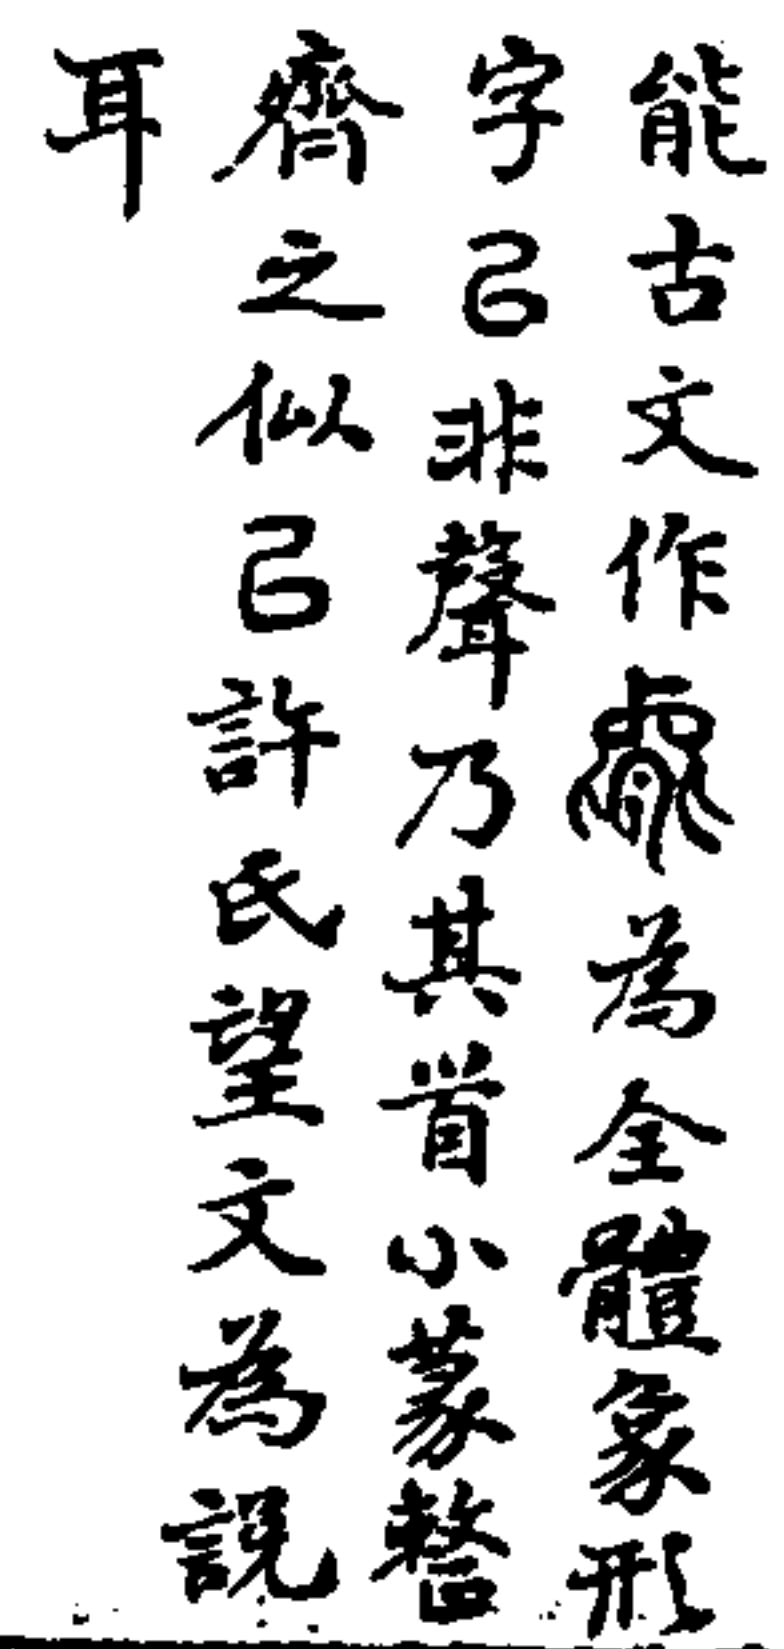 能古文作為全體象形
字㠯非聲乃其首小篆整
齊之似㠯許氏望文為說
耳